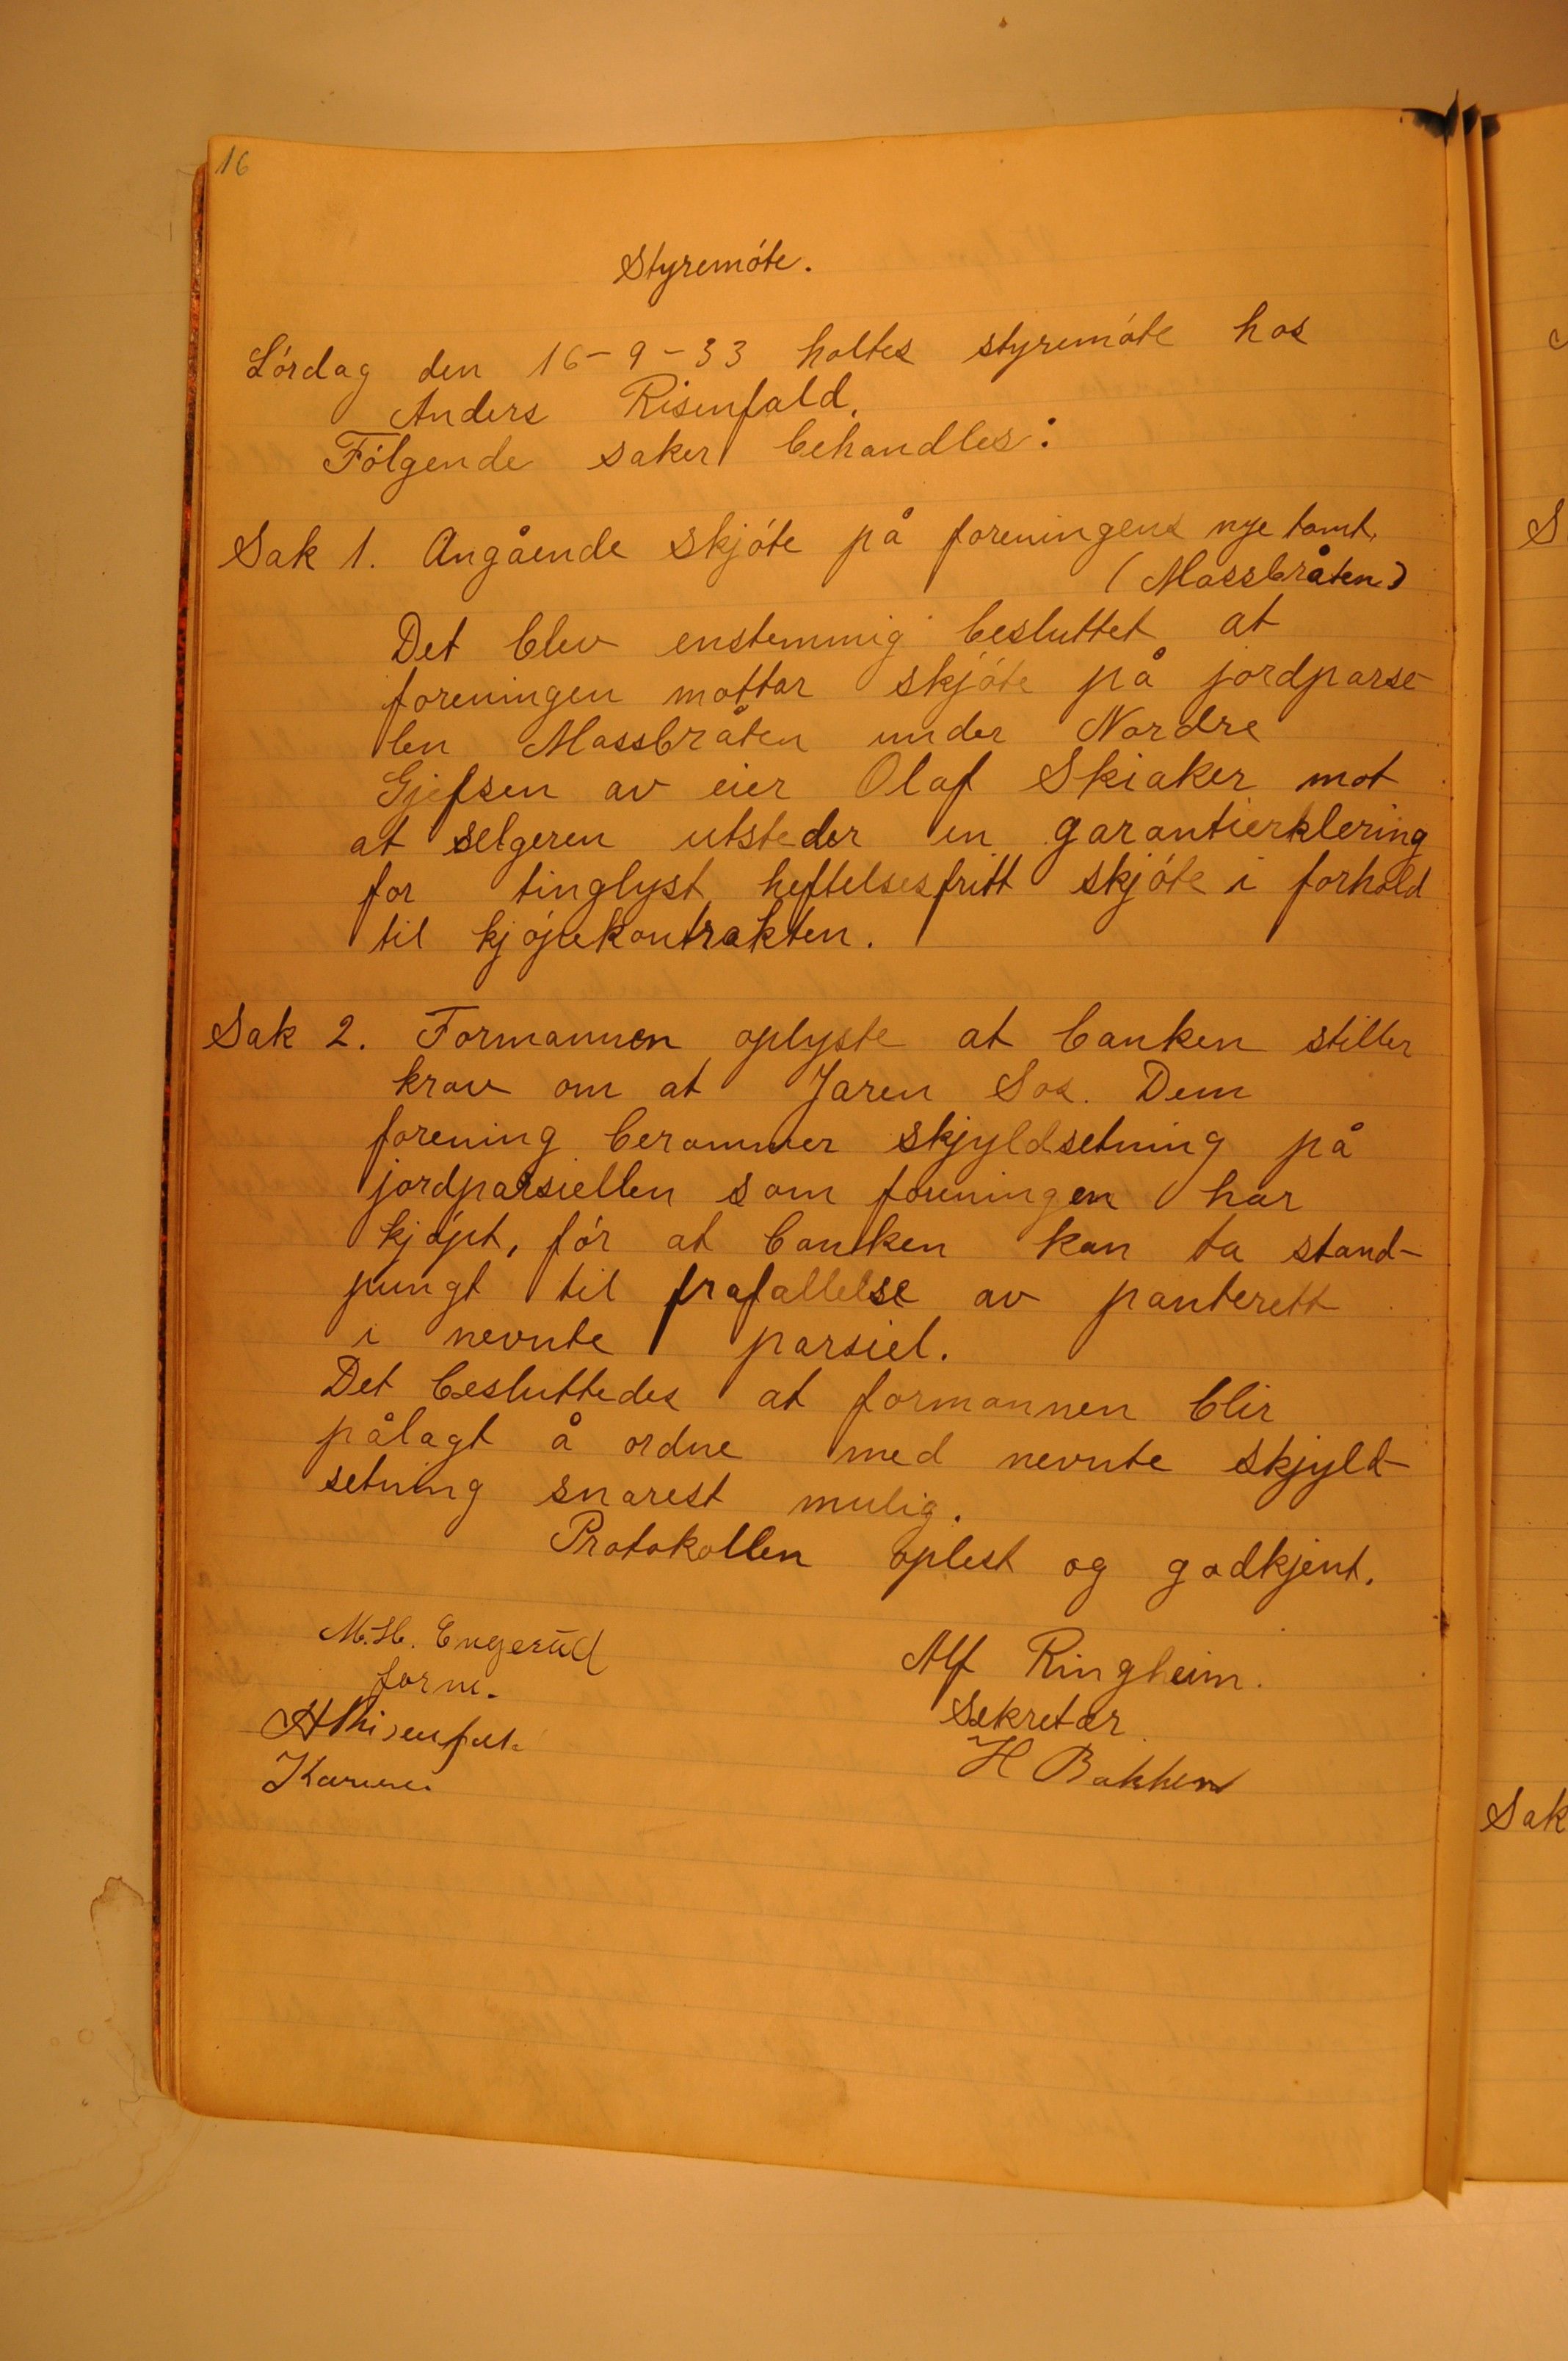 16
Styremóte.
Lórdag den 16-9-33 holtes styremóte hos
Anders Risenfald.
Fólgende saker behandles:
Sak 1. Angående skjóte på foreningens nye tomt.
(Massbråten)
Det blev enstemmig besluttet at
foreningen mottar skjóte på jordparse-
len Massbråten under Nordre
Gjefsen av eier Olaf Skiaker mot
at selgeren utsteder en garantierklering
for tinglyst heftelsesfritt skjóte i forhold
til kjópekontrakten.
Sak 2. Formannen oplyste at banken stiller
krav om at Jaren Sos. Dem
forening berammer skjyldsetning på
jordparsiellen som foreningen har
kjópt, fór at banken kan ta stand-
pungt til frafallelse av panterett
i nevnte parsiel.
Det besluttedes at formannen blir
pålagt å ordne med nevnte skjyld-
setning snarest mulig.
Protokollen oplest og godkjent.
M. H. Engerud
form.
Alf Ringheim.
Sekretær
H Bakken
S
Sak